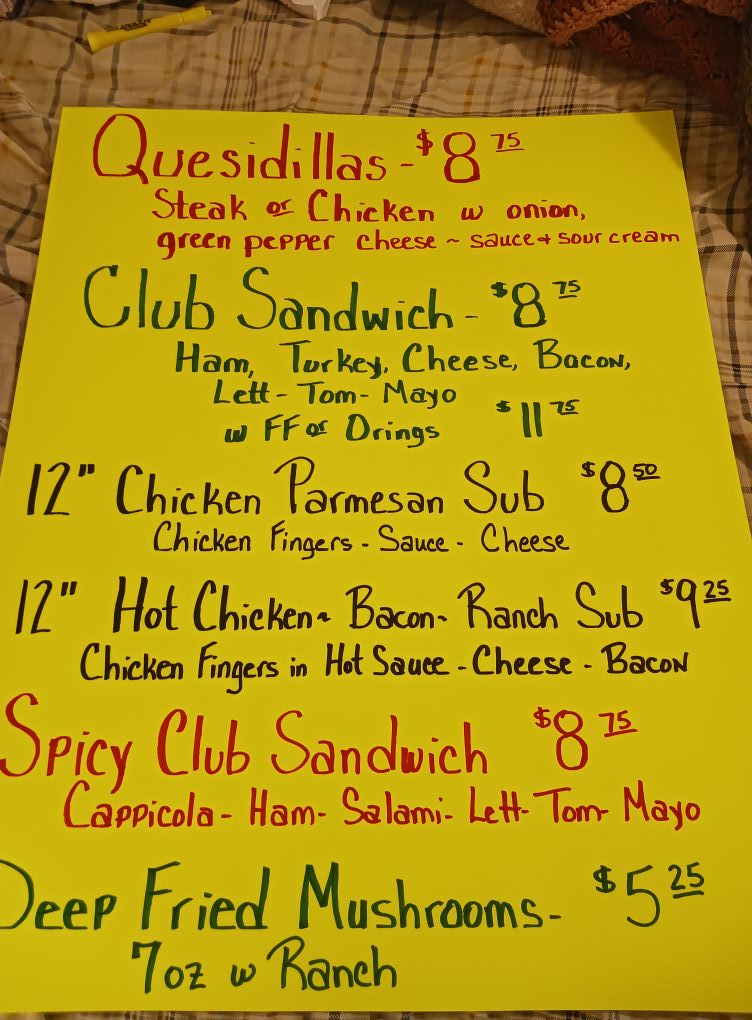 Quesidillas - $8 75
Steak or Chicken w onion,
green pepper cheese ~ sauce + sour cream
Club Sandwich - $8 75
Ham, Turkey, Cheese, Bacon,
Lett - Tom - Mayo
w FF or Orings $11 75
12" Chicken Parmesan Sub $8 50
Chicken Fingers - Sauce - Cheese
12" Hot Chicken ~ Bacon ~ Ranch Sub $9 25
Chicken Fingers in Hot Sauce - Cheese - Bacon
Spicy Club Sandwich $8 75
Cappicola - Ham - Salami - Lett - Tom - Mayo
Deep Fried Mushrooms - $5 25
7oz w Ranch